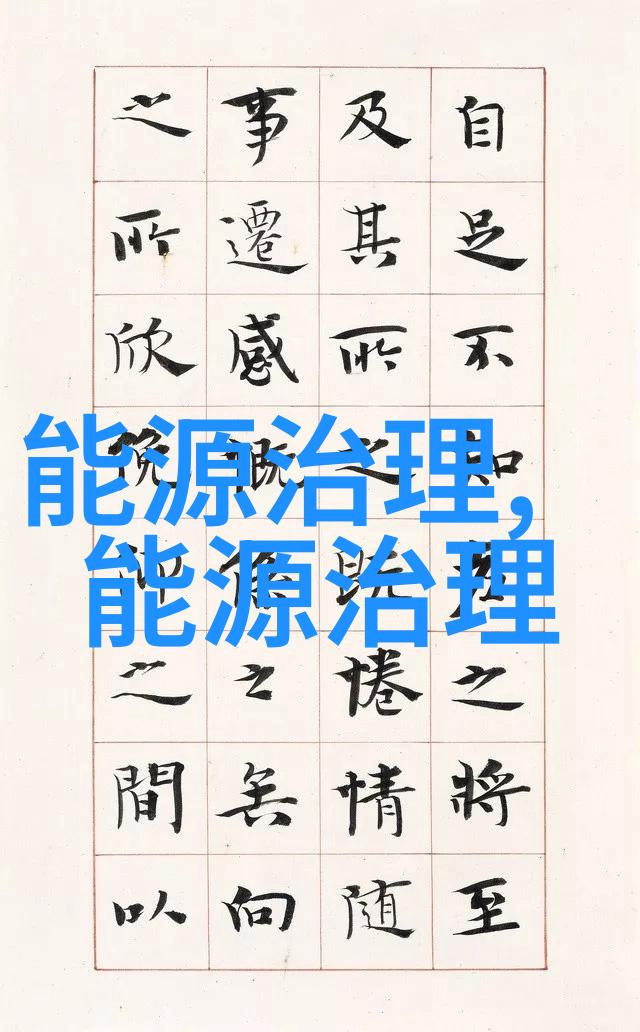 能源治理,
能源治理
自足不知之將至
及其所之既惓情隨
事遷感之矣向
之所欣俛之間以